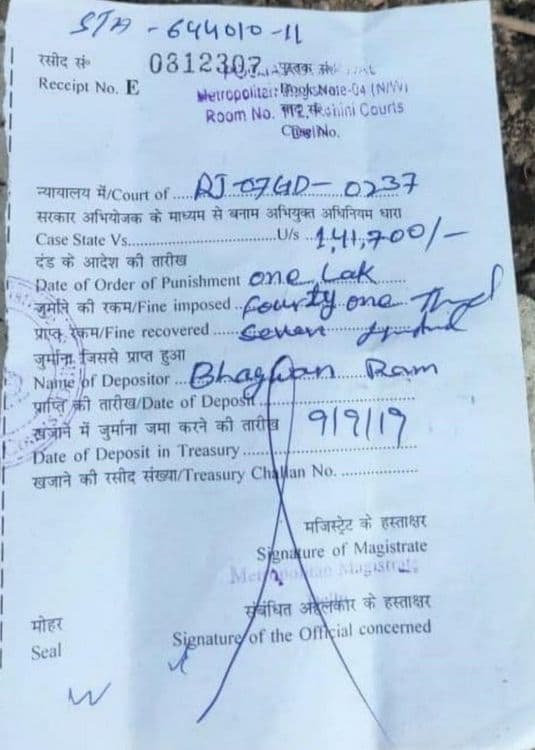 STA - 644010-11
रसीद सं॰ 0312307 पुस्तक सं॰
Receipt No. E
Metropolitan Book No.te-04 (N/W)
Room No. 112, Rohini Courts
Delhi
न्यायालय में/Court of .... RJ-07GD-0237
सरकार अभियोजक के माध्यम से बनाम अभियुक्त अधिनियम धारा
Case State Vs..............................U/s ..1,41,700/-
दंड के आदेश की तारीख
Date of Order of Punishment one Lak
जुर्माने की रकम/Fine imposed .. fourty one
प्राप्त रकम/Fine recovered ..... Seven
जुर्माना जिससे प्राप्त हुआ
Name of Depositor ... Bhagwan Ram
प्राप्ति की तारीख/Date of Deposit
खजाने में जुर्माना जमा करने की तारीख 9/9/19
Date of Deposit in Treasury
खजाने की रसीद संख्या/Treasury Challan No. ..................
मजिस्ट्रेट के हस्ताक्षर
Signature of Magistrate
Metropolitan Magistrate
संबंधित अहलकार के हस्ताक्षर
मोहर
Signature of the Official concerned
Seal